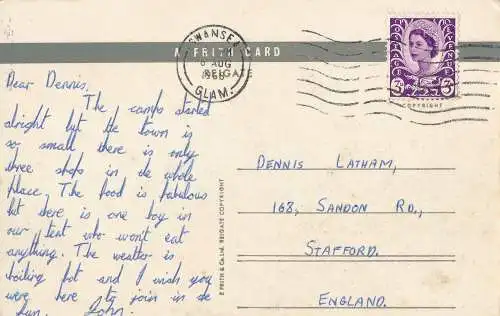 A FRITH CARD
SWANSEA
6 AUG
REIGATE
GLAM.
3D 3D
COPYRIGHT
Dear Dennis,
The camp started
alright but the town is
so small there is only
three shops in de whole
place. The food is fabulous
but dere is one boy in
our tent who won't eat
anything. The weather is
boiling hot and I wish you
were here to join in de
fun. John.
F. FRITH & Co. Ltd. REIGATE COPYRIGHT
DENNIS LATHAM,
168, SANDON RD.,
STAFFORD.
ENGLAND.